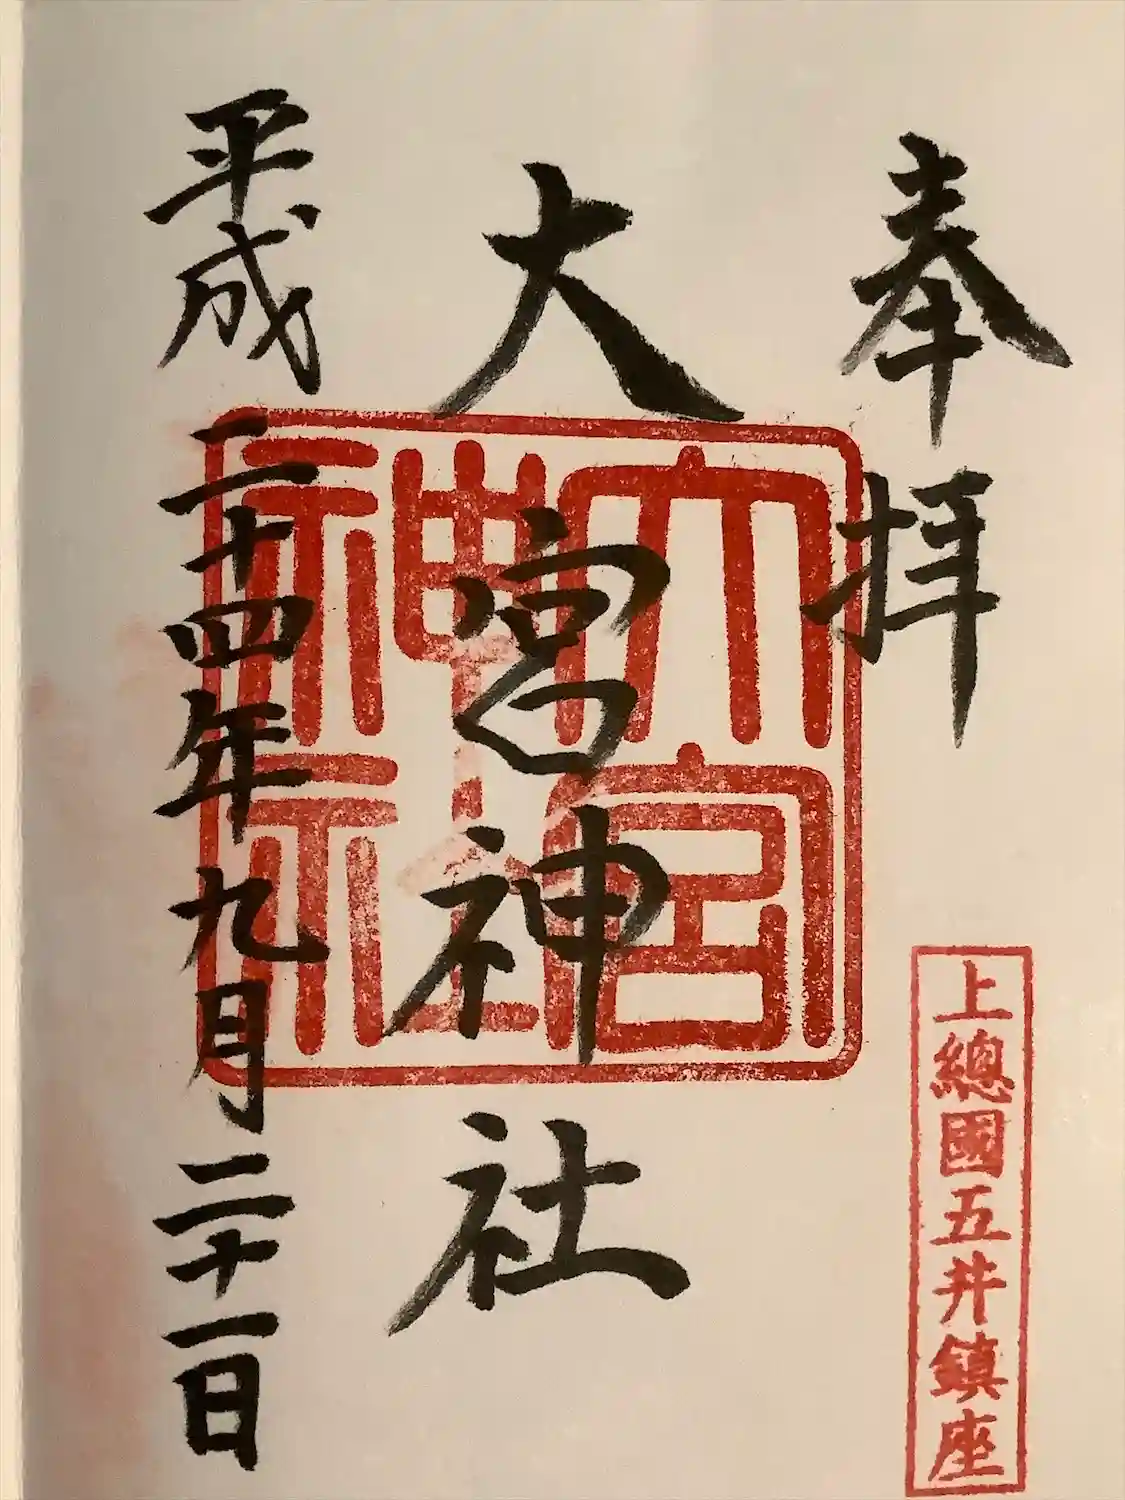 奉拝
上總國五井鎮座
大宮神社
大宮神社
平成二十四年九月二十一日